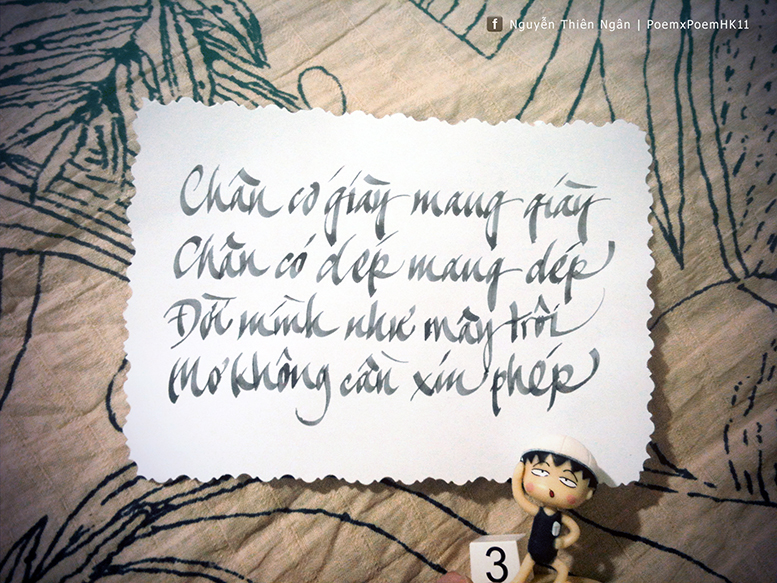 f Nguyễn Thiên Ngân | PoemxPoemHK11
Chân có giày mang giày
Chân có dép mang dép
Đời mình như mây trôi
Mơ không cần xin phép
3